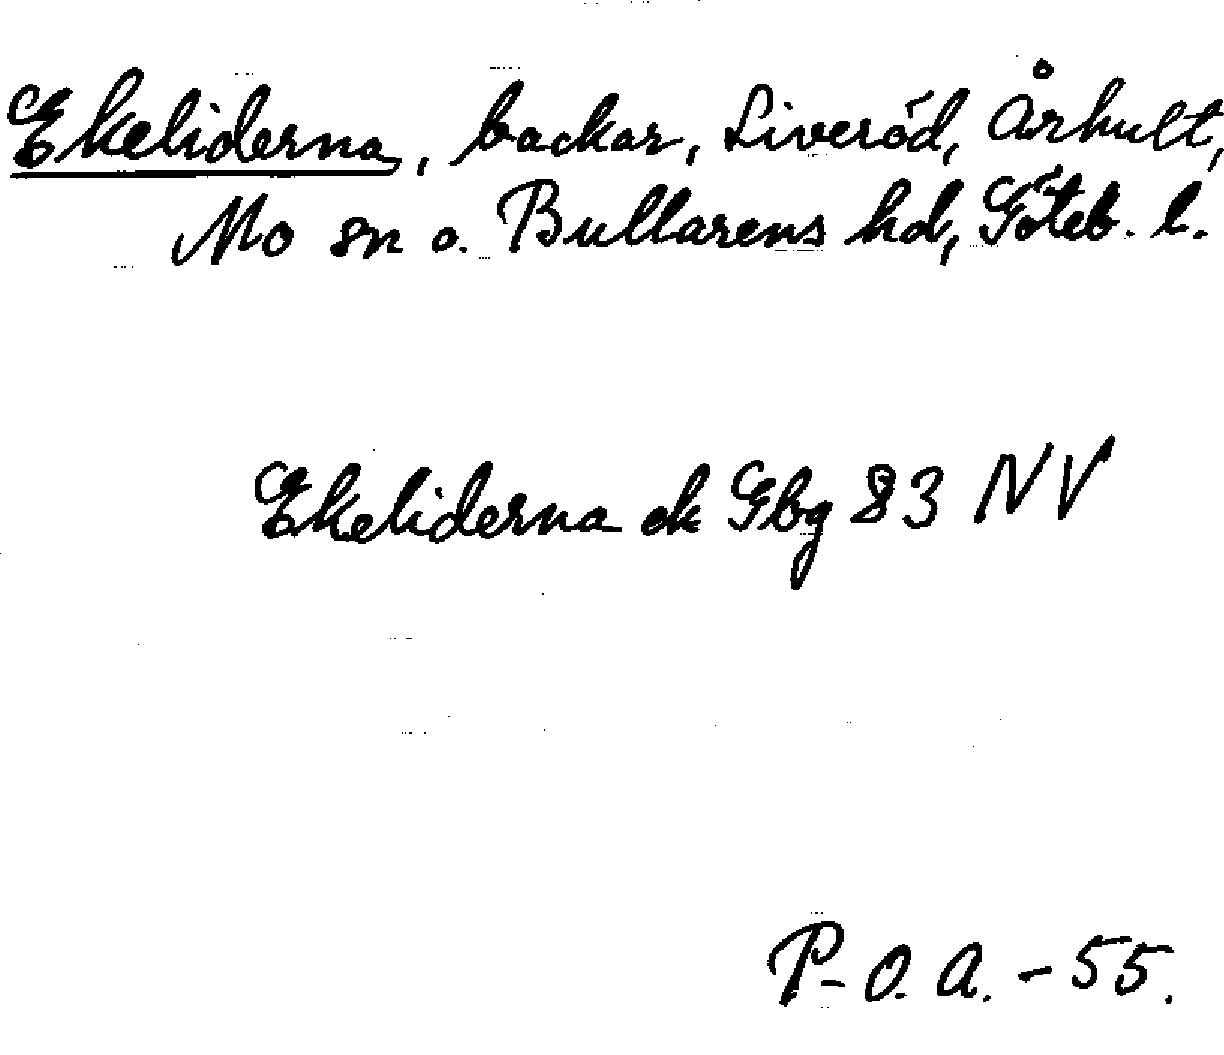 Ekeliderna, backar, Liveröd, Århult,
Mo sn o. Bullarens hd, Göteb. l.
Ekeliderna ek Gbg 83 NV
P-O. A. - 55.